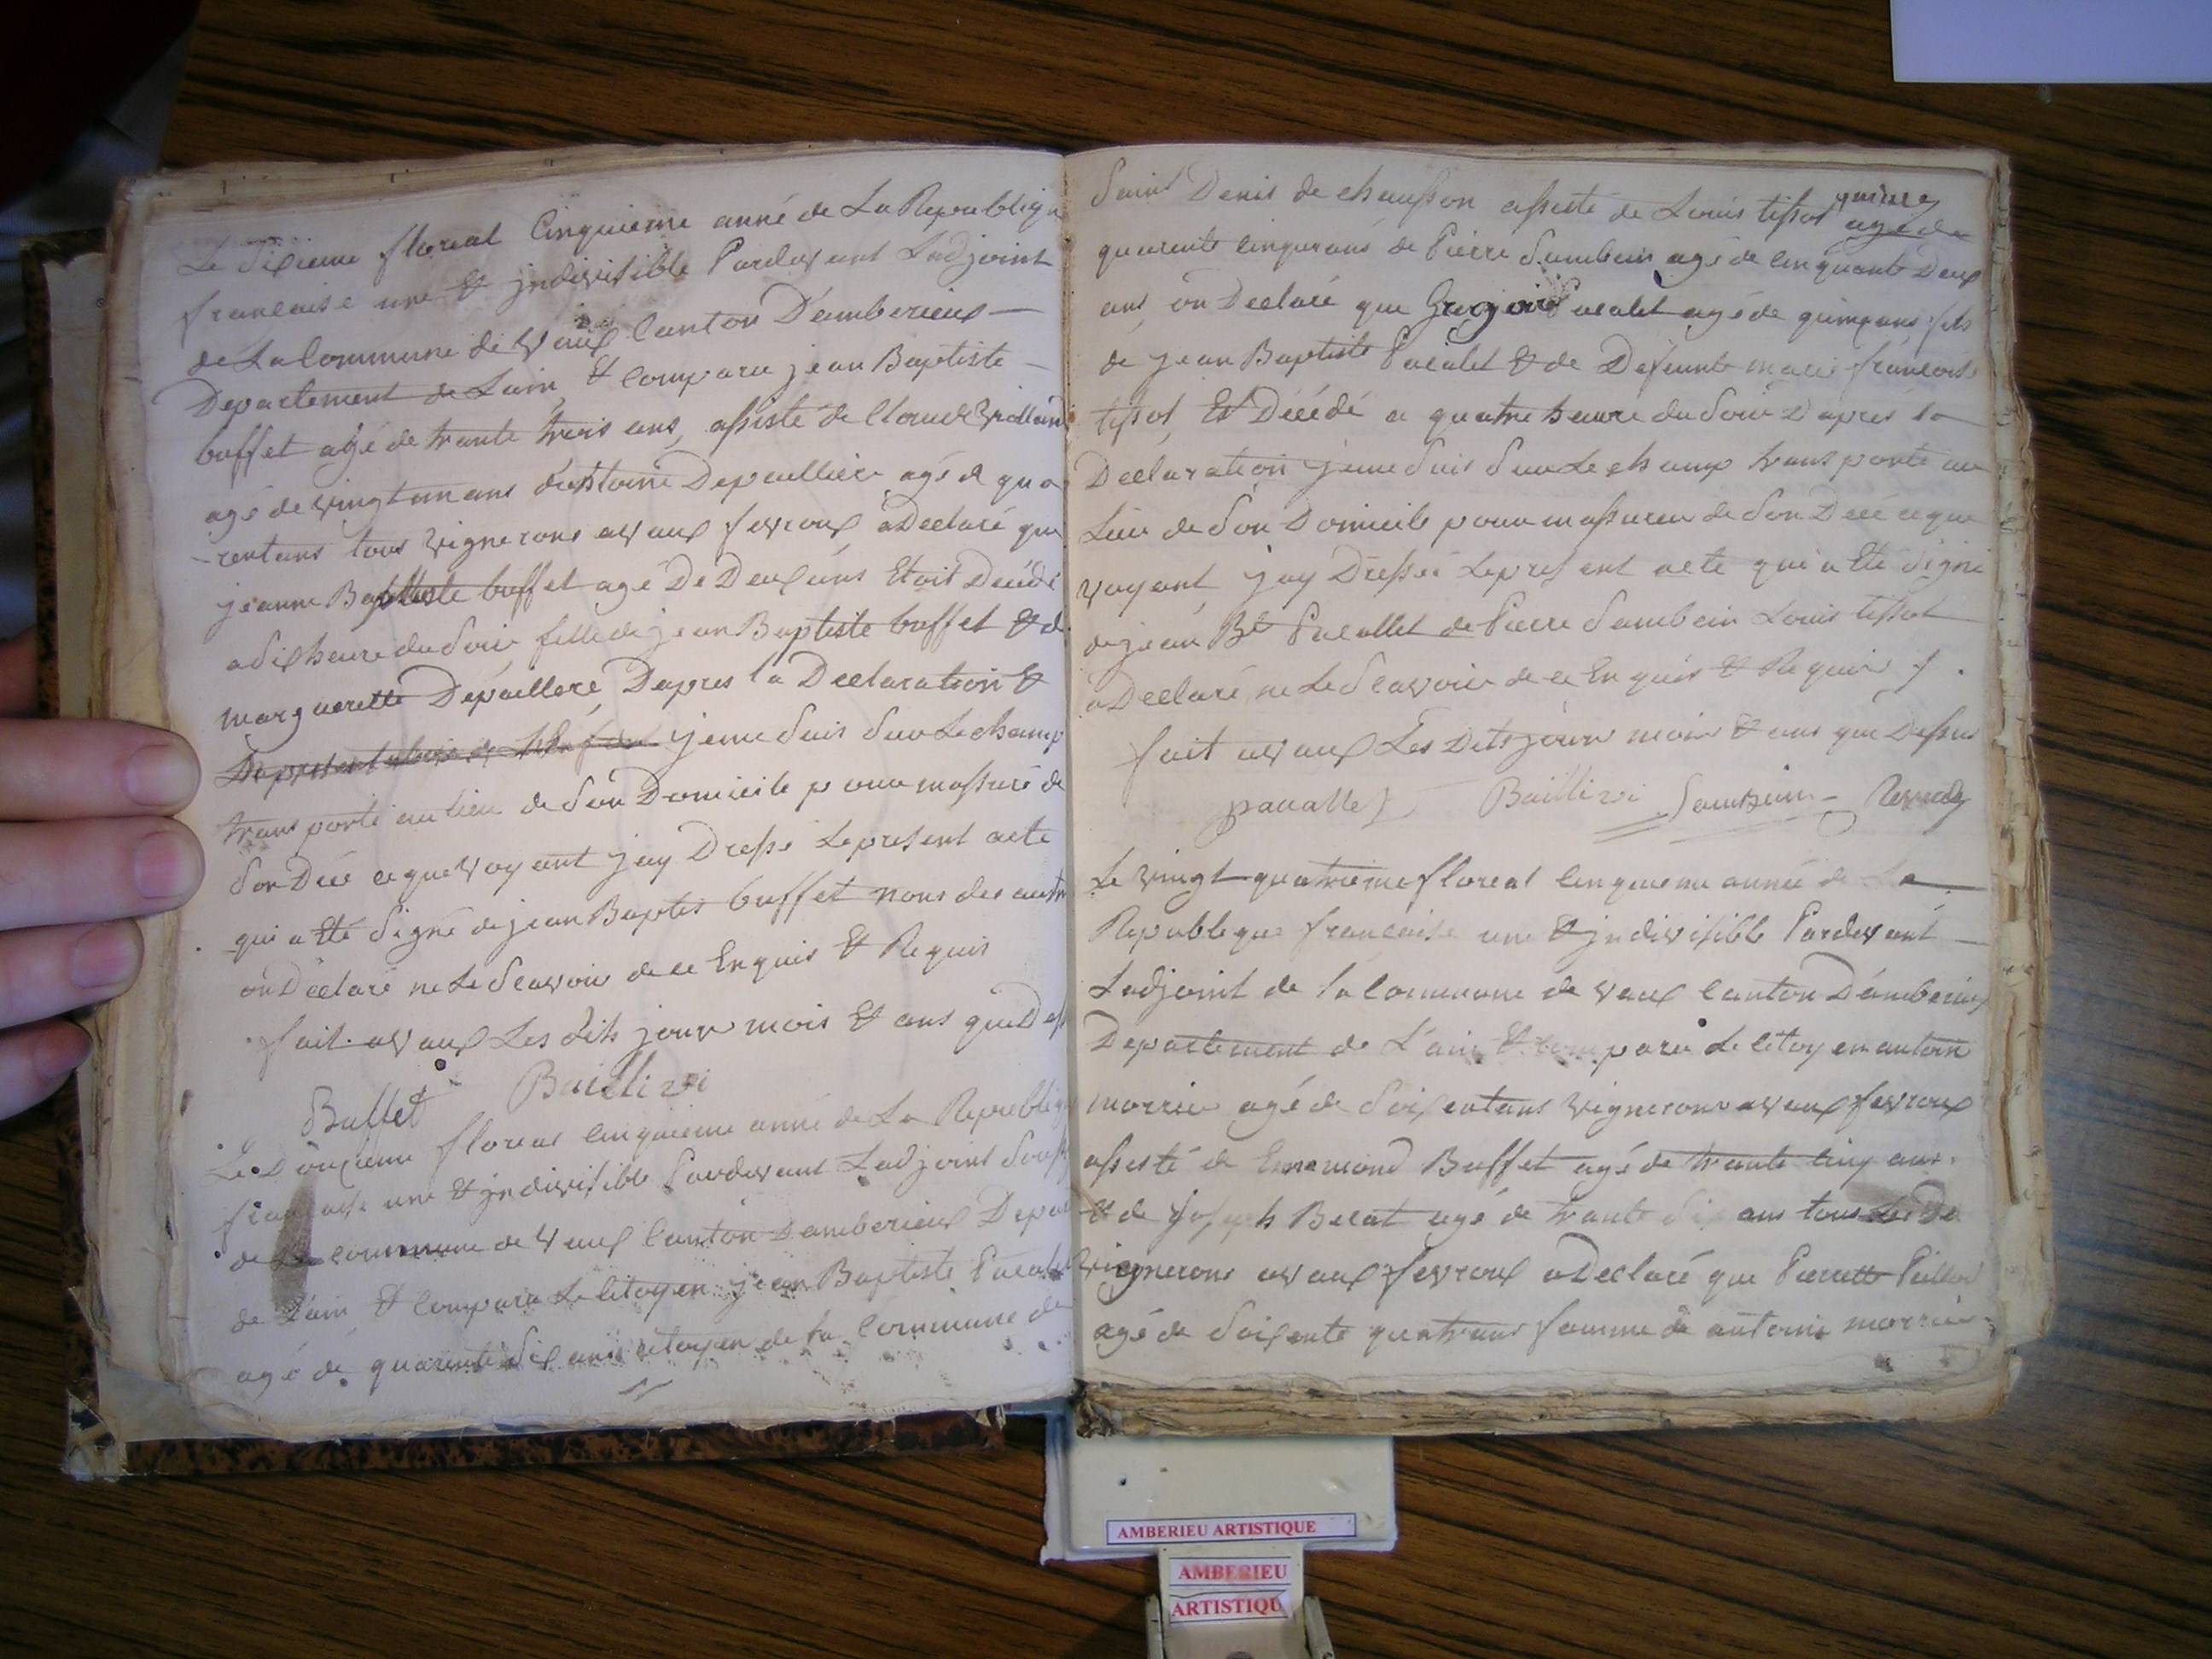 Le dixieme floreal Cinquieme anné de La Republiqu
francaise une & jndivisible Pardevant Ladjoint
de La Commune de Vaux Canton D'amberieux —
Departement de Lain, & Comparu jean Baptiste —
buffet agé de trante trois ans, assisté de Claude
agé de vingt un ans Depaillier agé d qua
-rentans tous vignerons a Vaux fevroux aDeclaré que
jeanne Baptiste buffet agé De Deux ans Etoit Décédé
a dix heure du Soir fille de jean Baptiste buffet & d
marguerette Depaillere, Dapres la Declaration &
jeme suis sur Le champ
transporté au lieu de son Domicile pour massuré de
son Déé ceque voyant jay Dressé Lepresent acte
qui a Eté Signé de jean Baptis buffet nous des autr
on Declaré ne Le Scavoir de ce Enquis & Requis
fait a Vaux Les dits jour mois & ans que D
Buffet Baillivi
Le Douzieme floreal Cinquieme anné de La Republiqu
francaise une & jndivisible Pardevant Ladjoint
de La commune de Vaux Canton Damberieux Depar
de Lain & Comparu Le Citoyen jean Baptiste Pacalet
agé de quarente Six ans citoyen de la Commune de
Saint Denis de chausson assisté de Louis tissot agé de
quarente cinqurans de Pierre Sambuin agé de Cinquante Deux
ans, on Declaré que Gregoire Pacalet agé de quinz ans fils
de jean Baptiste Pacalet & de Defeunte marie francois
tissot, Est Décédé a quatre heure du Soir Dapres la
Declaration jeme Suis Sur Le champ transporté au
Lieu de Son Domicile pour massurer de Son Déé ceque
voyant, jay Dressé Lepresent acte qui a Eté Signé
de jean Bte Pacallet de Pierre Sambuin Louis tissot
a Declaré, ne Le Scavoir de ce Enquis & Requis
fait a Vaux Les Dits jour mois & ans que Dessus
pacallet Baillivi Sambuin
Le vingt quatrieme floreal Cinquieme année de La
Republique francaise une & jndivisible Pardevant —
Ladjoint de la Commune de Vaux Canton D'amberieux
Departement de L'ain & comparu Le Citoyen antoin
morrier agé de Soixentans vignerons a Vaux fevroux
assisté de Ennemond Buffet agé de trante Cinq ans.
& de joseph Belat agé de trante Six ans tous
vignerons a Vaux fevroux aDeclaré que Pierrette
agé de Soixente quatrans famme de antoine morrier
AMBERIEU ARTISTIQUE
AMBERIEU
ARTISTIQU